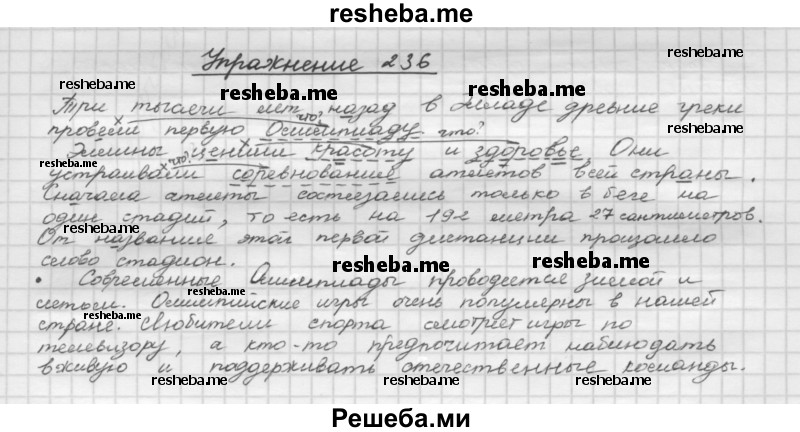 resheba.me
Упражнение 236
resheba.me
resheba.me
resheba.me
resheba.me
Три тысячи лет назад в Элладе древние греки
что?
провели первую Олимпиаду.
что?
Эллины ценили красоту и здоровье. Они
resheba.me
что?
устраивали соревнование атлетов всей страны.
resheba.me
Сначала атлеты состязались только в беге на
один стадий, то есть на 192 метра 27 сантиметров.
От название этой первой дистанции произошло
слово стадион.
resheba.me
resheba.me
Современные Олимпиады проводятся зимой и
летом. Олимпийские игры очень популярны в нашей
resheba.me
стране. Любители спорта смотрят игры по
телевизору, а кто-то предпочитает наблюдать
вживую и поддерживать отечественные команды.
resheba.me
resheba.me
resheba.me
Решеба.ми